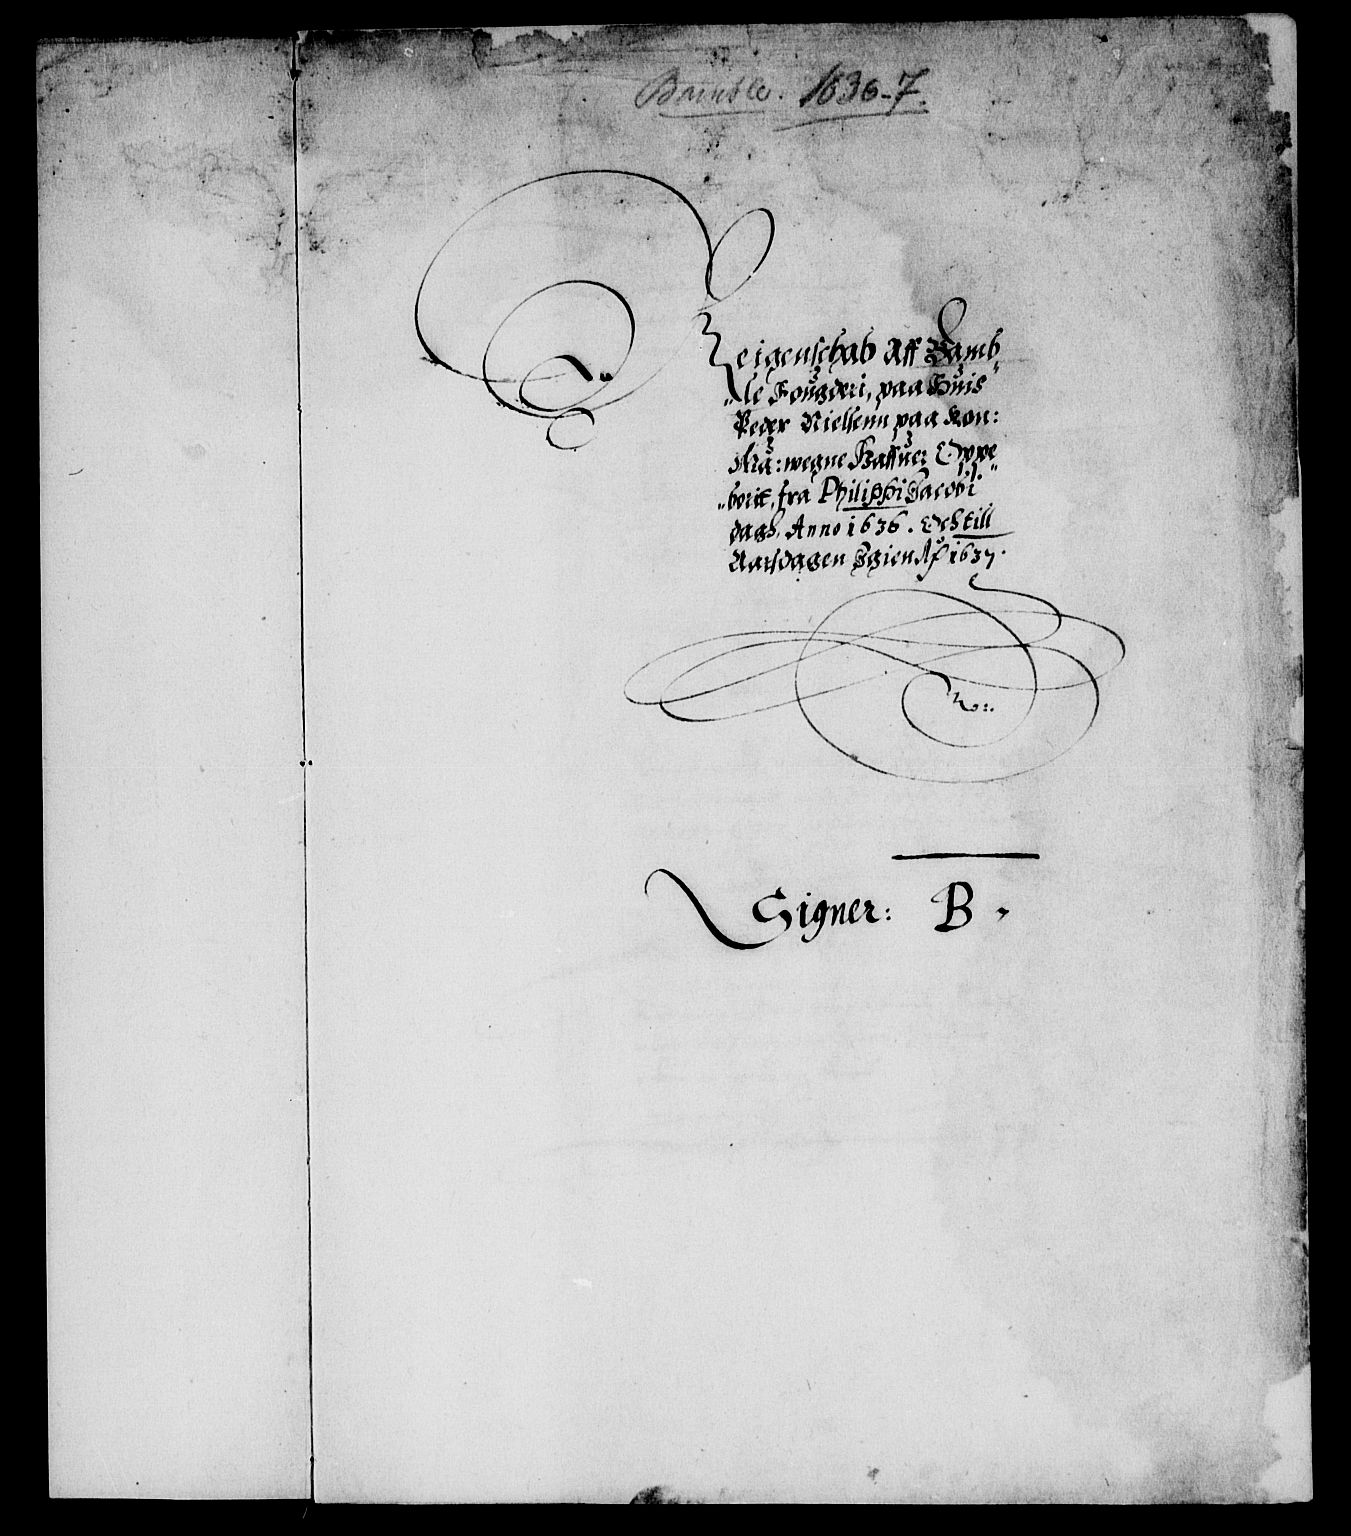 Bamble. 1636-7.
Reigenschab Aff Bamb
"le Fougderi, paa Huis"
Peder Nielsenn paa Kon:
Ma: wegne Haffuer Oppe
"borit, fra Philippi Jacobi
dagh, Anno 1636. Och till
Aarsdagen Igien Aff 1637.
Signer: B.